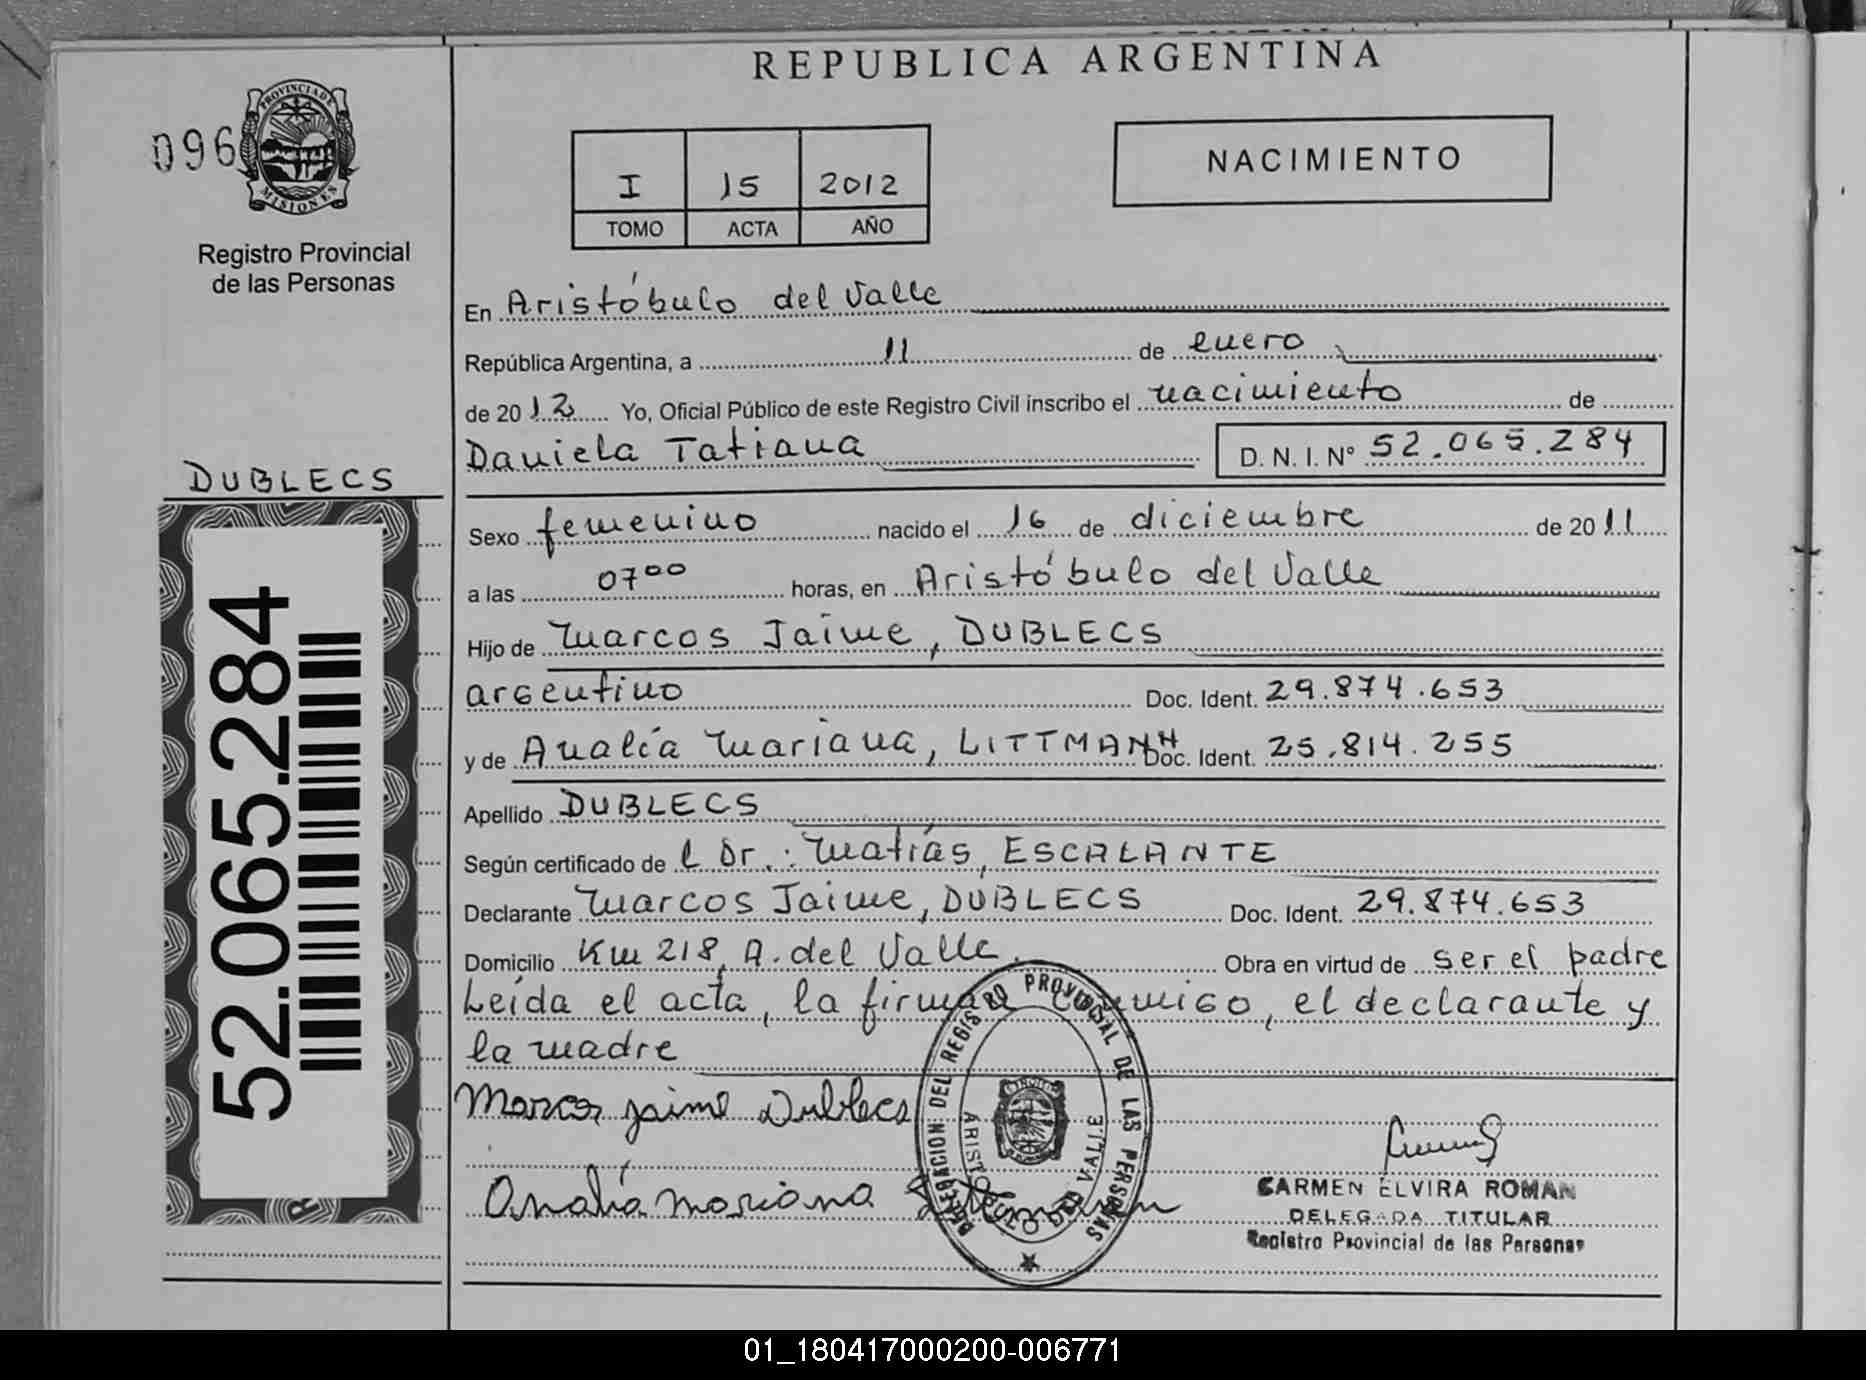 REPUBLICA ARGENTINA
096
PROVINCIA DE
MISIONES
Registro Provincial
de las Personas
I 15 2012
TOMO ACTA AÑO
NACIMIENTO
En Aristóbulo del Valle
República Argentina, a 11 de enero
de 2012 Yo, Oficial Público de este Registro Civil inscribo el nacimiento de
Daniela Tatiana D. N. I. N° 52.065.284
DUBLECS
52.065.284
Sexo femenino nacido el 16 de diciembre de 2011
a las 07⁰⁰ horas, en Aristóbulo del Valle
Hijo de Marcos Jaime, DUBLECS
argentino Doc. Ident. 29.874.653
y de Analía Mariana, LITTMANN Doc. Ident. 25.814.255
Apellido DUBLECS
Según certificado de l Dr.: Matías, ESCALANTE
Declarante Marcos Jaime, DUBLECS Doc. Ident. 29.874.653
Domicilio Km 218, A. del Valle Obra en virtud de ser el padre
Leída el acta, la firman conmigo, el declarante y
la madre
Marcos Jaime Dublecs
Analía Mariana Littmann
DELEGACION DEL REGISTRO PROVINCIAL DE LAS PERSONAS
ARISTOBULO DEL VALLE
CARMEN ELVIRA ROMAN
DELEGADA TITULAR
Registro Provincial de las Personas
01_180417000200-006771